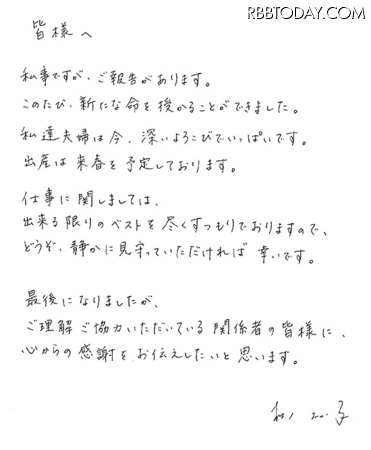 RBBTODAY.COM
皆様へ
私事ですが、ご報告があります。
このたび、新たな命を授かることができました。
私達夫婦は今、深いよろこびでいっぱいです。
出産は来春を予定しております。
仕事に関しましては、
出来る限りのベストを尽くすつもりでおりますので、
どうぞ、静かに見守っていただければ幸いです。
最後になりましたが、
ご理解ご協力いただいている関係者の皆様に、
心からの感謝をお伝えしたいと思います。